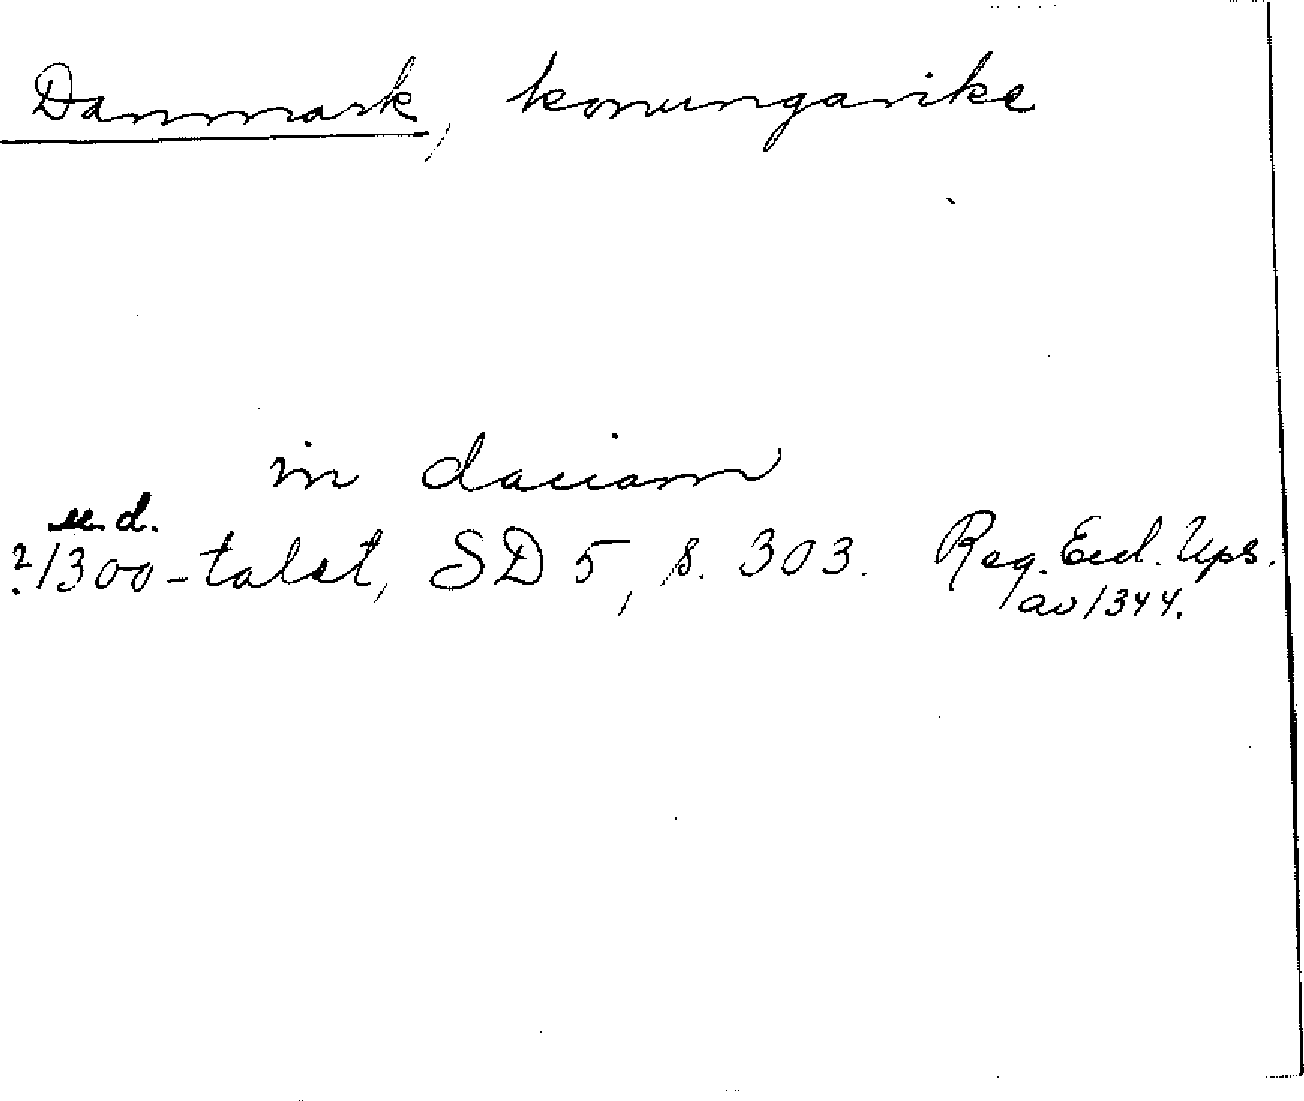 Danmark, konungarike
in daciam
u.d.
?1300-talet, SD 5, s. 303. Reg. Eccl. Ups.
av 1344.